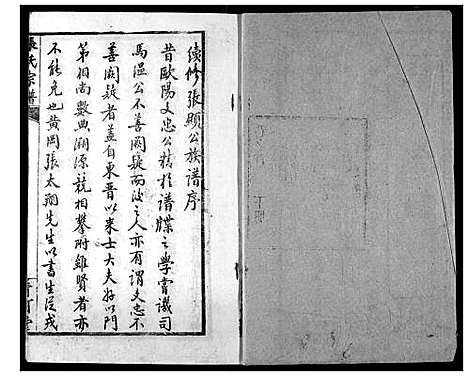 續修張顯公族譜序
昔歐陽文忠公精於譜牒之學嘗譏司
馬溫公不善闕疑而後之人亦有謂文忠不
善闕疑者蓋自東晉以來士大夫好以門
第相尚數典溯源競相攀附雖賢者亦
不能免也黃岡張太翔先生以書生從戎
張氏宗譜